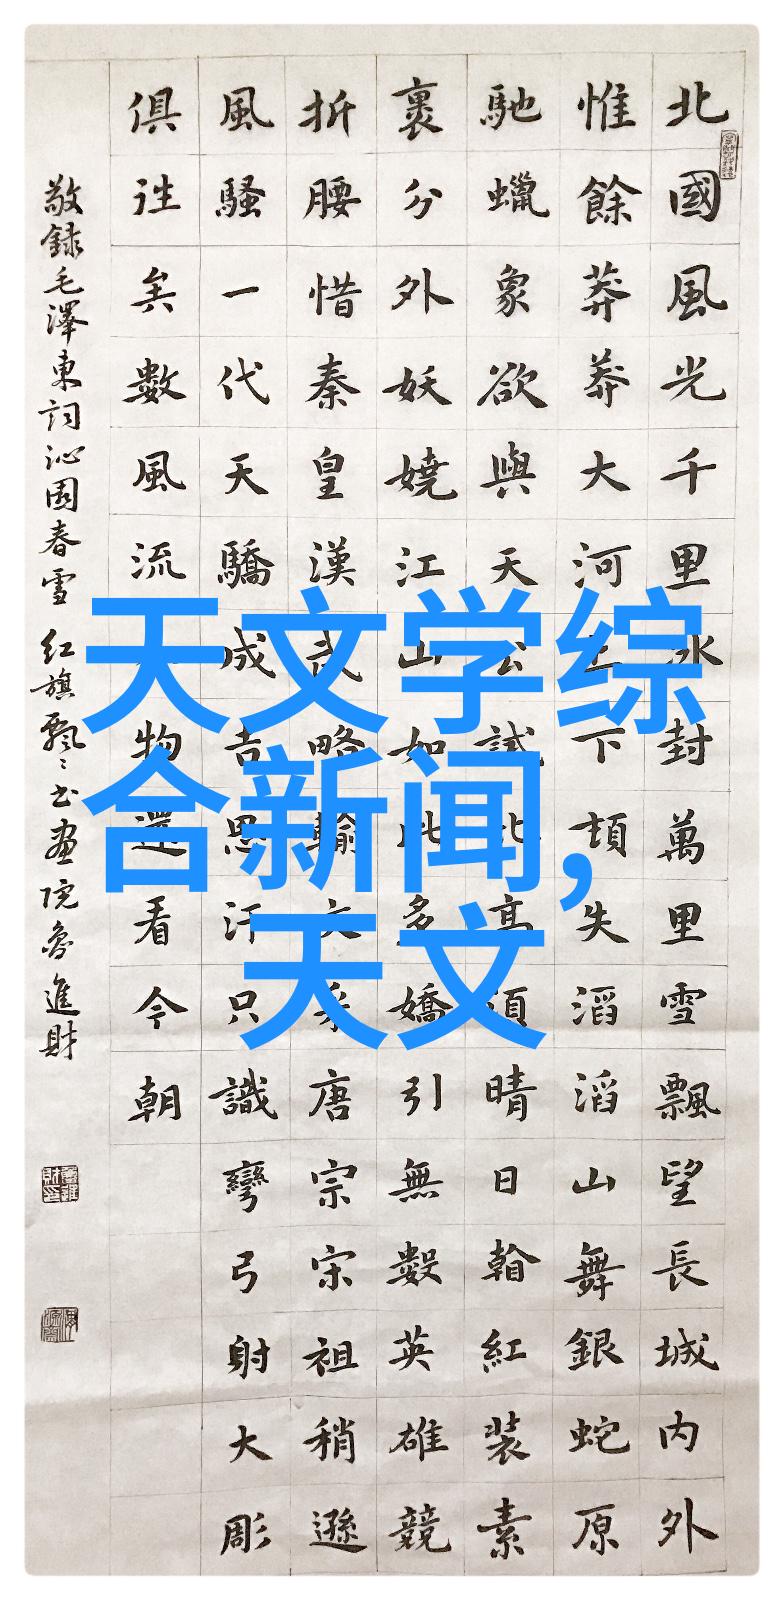 天文学综
合新闻,
天文
北國風光千里冰封萬里雪飄望長城内外
惟餘莽莽大河上下頓失滔滔山舞銀蛇原
馳蠟象欲與天公試比高須晴日紅裝素
裹分外妖嬈江山如此多嬌引無數英雄競
折腰惜秦皇漢武略輸文采唐宗宋祖稍遜
風騷一代天驕成吉思汗只識彎弓射大彫
俱往矣數風流物還看今朝
敬録毛澤東詞沁園春雪 红旗飄〻书画院魯進財